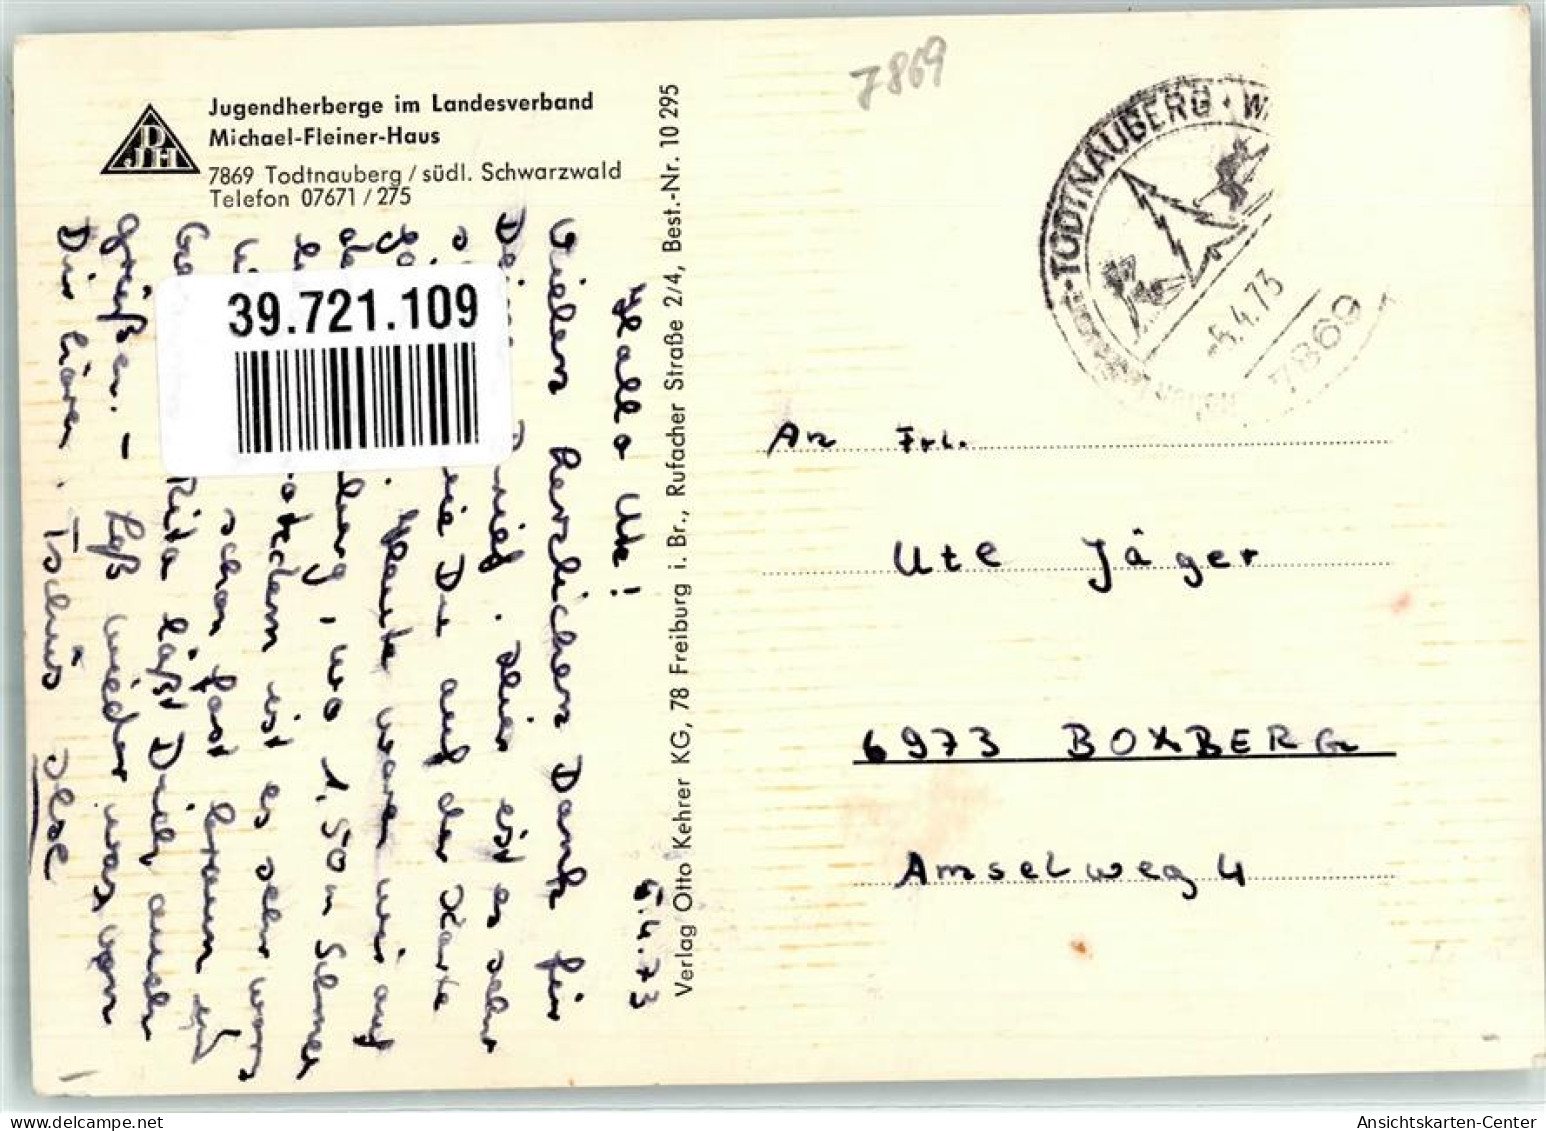 Jugendherberge im Landesverband
Michael-Fleiner-Haus
7869 Todtnauberg / südl. Schwarzwald
Telefon 07671 / 275
DJH
7869
TODTNAUBERG
5.4.73
7869
39.721.109
5.4.73
Hallo Ute!
Vielen herzlichen Dank für
Brief. Hier ist es sehr
wie Du auf der Karte
Heute waren wir auf
berg, wo 1,50 m Schnee
Trotzdem ist es sehr warm
schon fast braun
Rita läßt Dich auch
grüßen. – Laß wieder was von
Dir hören. Tschüs Ilse
Verlag Otto Kehrer KG, 78 Freiburg i. Br., Rufacher Straße 2/4, Best.-Nr. 10 295
An Frl.
Ute Jäger
6973 BOXBERG
Amselweg 4
Ansichtskarten-Center